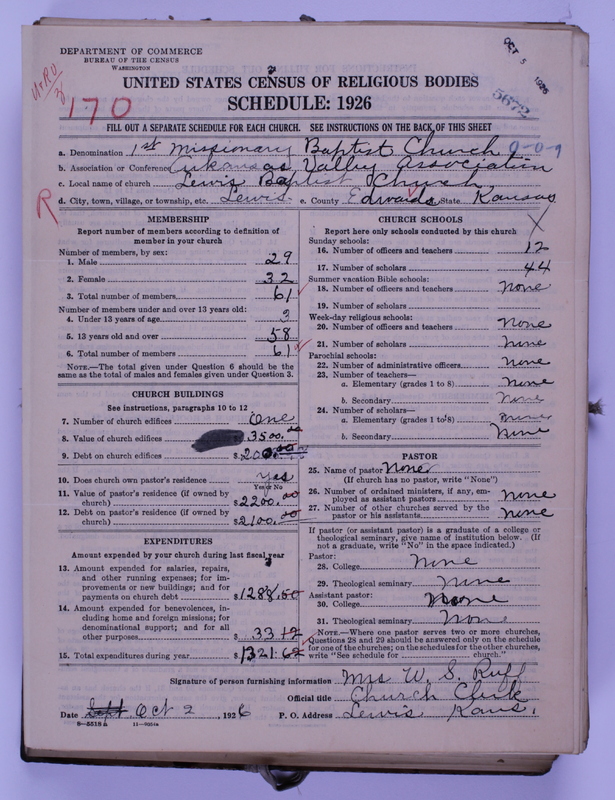 DEPARTMENT OF COMMERCE
BUREAU OF THE CENSUS
WASHINGTON
OCT 5 1926
5672
170
UNITED STATES CENSUS OF RELIGIOUS BODIES
SCHEDULE: 1926
FILL OUT A SEPARATE SCHEDULE FOR EACH CHURCH. SEE INSTRUCTIONS ON THE BACK OF THIS SHEET
a. Denomination 1st Missionary Baptist Church 0-0-9
b. Association or Conference Arkansas Valley Association
c. Local name of church Lewis Baptist Church
R
d. City, town, village, or township, etc. Lewis e. County Edwards State Kansas
MEMBERSHIP
Report number of members according to definition of
member in your church
Number of members, by sex:
1. Male 29
2. Female 32
3. Total number of members 61
Number of members under and over 13 years old:
4. Under 13 years of age 3
5. 13 years old and over 58
6. Total number of members 61
NOTE.—The total given under Question 6 should be the
same as the total of males and females given under Question 3.
CHURCH BUILDINGS
See instructions, paragraphs 10 to 12
7. Number of church edifices One
8. Value of church edifices $3500.00
9. Debt on church edifices $
10. Does church own pastor's residence Yes
Yes or No
11. Value of pastor's residence (if owned by
church) $2200.00
12. Debt on pastor's residence (if owned by
church) $2100.00
EXPENDITURES
Amount expended by your church during last fiscal year
13. Amount expended for salaries, repairs,
and other running expenses; for im-
provements or new buildings; and for
payments on church debt $1288.50
14. Amount expended for benevolences, in-
cluding home and foreign missions; for
denominational support; and for all
other purposes $33.12
15. Total expenditures during year $1321.62
CHURCH SCHOOLS
Report here only schools conducted by this church
Sunday schools:
16. Number of officers and teachers 12
17. Number of scholars 44
Summer vacation Bible schools:
18. Number of officers and teachers None
19. Number of scholars
Week-day religious schools:
20. Number of officers and teachers None
21. Number of scholars None
Parochial schools:
22. Number of administrative officers None
23. Number of teachers—
a. Elementary (grades 1 to 8) None
b. Secondary None
24. Number of scholars—
a. Elementary (grades 1 to 8) None
b. Secondary None
PASTOR
25. Name of pastor None
(If church has no pastor, write "None")
26. Number of ordained ministers, if any, em-
ployed as assistant pastors None
27. Number of other churches served by the
pastor or his assistants None
If pastor (or assistant pastor) is a graduate of a college or
theological seminary, give name of institution below. (If
not a graduate, write "No" in the space indicated.)
Pastor:
28. College None
29. Theological seminary None
Assistant pastor:
30. College None
31. Theological seminary None
NOTE.—Where one pastor serves two or more churches,
Questions 28 and 29 should be answered only on the schedule
for one of the churches; on the schedules for the other churches,
write "See schedule for church."
Signature of person furnishing information Mrs W. S. Ruff
Official title Church Clerk
Date Sept. Oct 2, 1926 P. O. Address Lewis Kans.
8-5618a